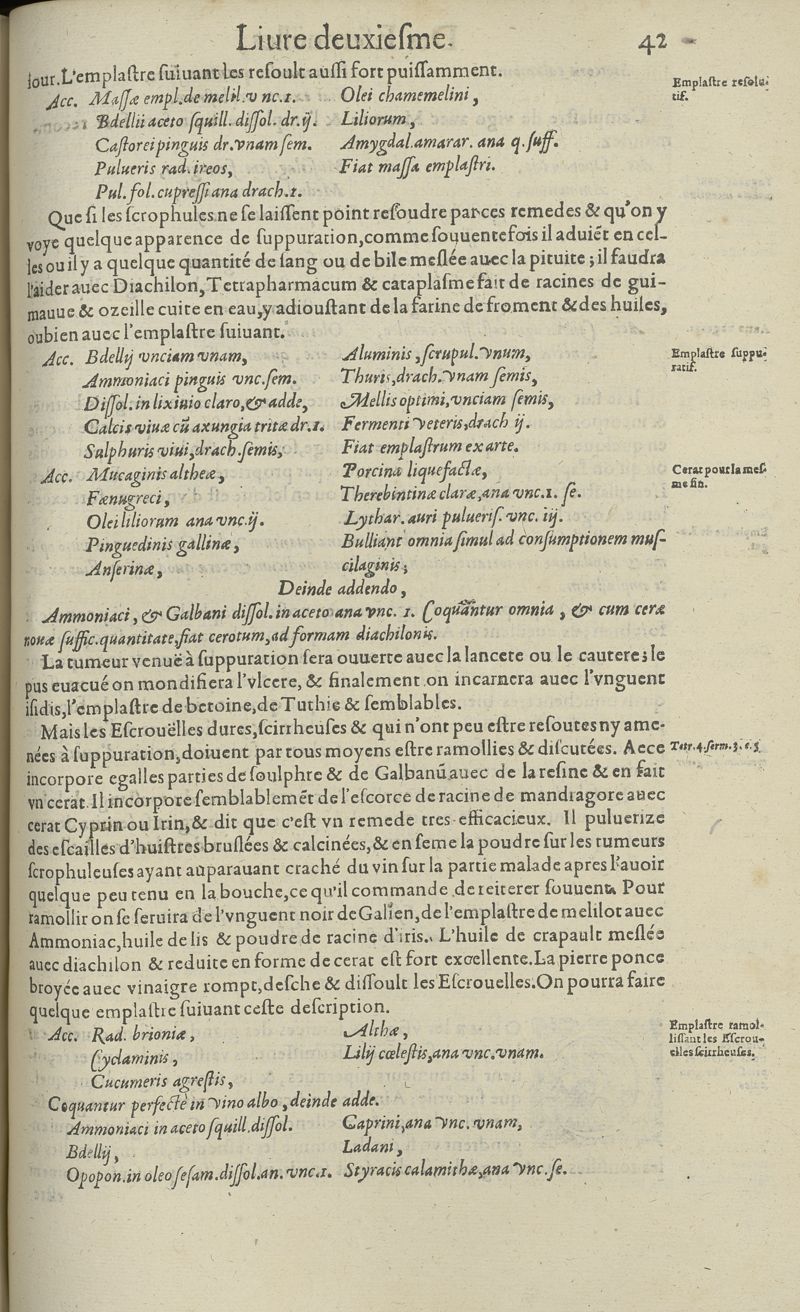 Liure deuxieſme. 42
iour. L'emplaſtre ſuiuant les reſoult auſſi fort puiſſamment.
Emplaſtre reſolu-
tif.
Acc. Maſſæ empl. de melil. vnc. 1.
Bdellii aceto ſquill. diſſol. dr. ij.
Caſtorei pinguis dr. vnam ſem.
Pulueris rad. ireos,
Pul. fol. cupreſſi ana drach. 1.
Olei chamemelini,
Liliorum,
Amygdal. amarar. ana q. ſuff.
Fiat maſſa emplaſtri.
Que ſi les ſcrophules ne ſe laiſſent point reſoudre par ces remedes & qu'on y
voye quelque apparence de ſuppuration, comme ſouuentefois il aduiẽt en cel-
les ou il y a quelque quantité de ſang ou de bile meſlée auec la pituite; il faudra
l'aider auec Diachilon, Tetrapharmacum & cataplaſme fait de racines de gui-
mauue & ozeille cuite en eau, y adiouſtant de la farine de froment & des huiles,
ou bien auec l'emplaſtre ſuiuant.
Emplaſtre ſuppu-
ratif.
Acc. Bdellij vnciam vnam,
Ammoniaci pinguis vnc. ſem.
Diſſol. in lixiuio claro, & adde,
Calcis viuæ cũ axungia tritæ dr. 1.
Sulphuris viui, drach. ſemis,
Aluminis, ſcrupul. vnum,
Thuris, drach. vnam ſemis,
Mellis optimi, vnciam ſemis,
Fermenti veteris, drach ij.
Fiat emplaſtrum ex arte.
Cerat pour la meſ-
me fin.
Acc. Mucaginis altheæ,
Fænugreci,
Olei liliorum ana vnc. ij.
Pinguedinis gallinæ,
Anſerinæ,
Porcinæ liquefactæ,
Therebintinæ claræ, ana vnc. 1. ſe.
Lythar. auri pulueriſ. vnc. iij.
Bulliant omnia ſimul ad conſumptionem muſ-
cilaginis;
Deinde addendo,
Ammoniaci, & Galbani diſſol. in aceto ana vnc. 1. Coquantur omnia, & cum ceræ
nouæ ſuffic. quantitate, fiat cerotum, ad formam diachilonis.
La tumeur venuë à ſuppuration ſera ouuerte auec la lancete ou le cautere; le
pus euacué on mondifiera l'vlcere, & finalement on incarnera auec l'vnguent
iſidis, l'emplaſtre de betoine, de Tuthie & ſemblables.
Mais les Eſcrouëlles dures, ſcirrheuſes & qui n'ont peu eſtre reſoutes ny ame-
nées à ſuppuration, doiuent par tous moyens eſtre ramollies & diſcutées. Aece
Tetr. 4. ſerm. 3. c. 5
incorpore egalles parties de ſoulphre & de Galbanũ auec de la reſine & en fait
vn cerat. Il incorpore ſemblablemẽt de l'eſcorce de racine de mandragore auec
cerat Cyprin ou Irin, & dit que c'eſt vn remede tres-efficacieux. Il puluerize
des eſcailles d'huiſtres bruſlées & calcinées, & en ſeme la poudre ſur les tumeurs
ſcrophuleuſes ayant auparauant craché du vin ſur la partie malade apres l'auoir
quelque peu tenu en la bouche, ce qu'il commande de reiterer ſouuent. Pour
ramollir on ſe ſeruira de l'vnguent noir de Galien, de l'emplaſtre de melilot auec
Ammoniac, huile de lis & poudre de racine d'iris. L'huile de crapault meſlée
auec diachilon & reduite en forme de cerat eſt fort excellente. La pierre ponce
broyée auec vinaigre rompt, deſche & diſſoult les Eſcrouelles. On pourra faire
quelque emplaſtre ſuiuant ceſte deſcription.
Emplaſtre ramol-
liſſant les Eſcrou-
elles ſcirrheuſes.
Acc. Rad. brioniæ,
Cyclaminis,
Cucumeris agreſtis,
Althæ,
Lilij cœleſtis, ana vnc. vnam.
Coquantur perfectè in vino albo, deinde adde.
Ammoniaci in aceto ſquill. diſſol.
Bdellij,
Opopon. in oleo ſeſam. diſſol. an. vnc. 1.
Caprini, ana vnc. vnam,
Ladani,
Styracis calamithæ, ana vnc. ſe.